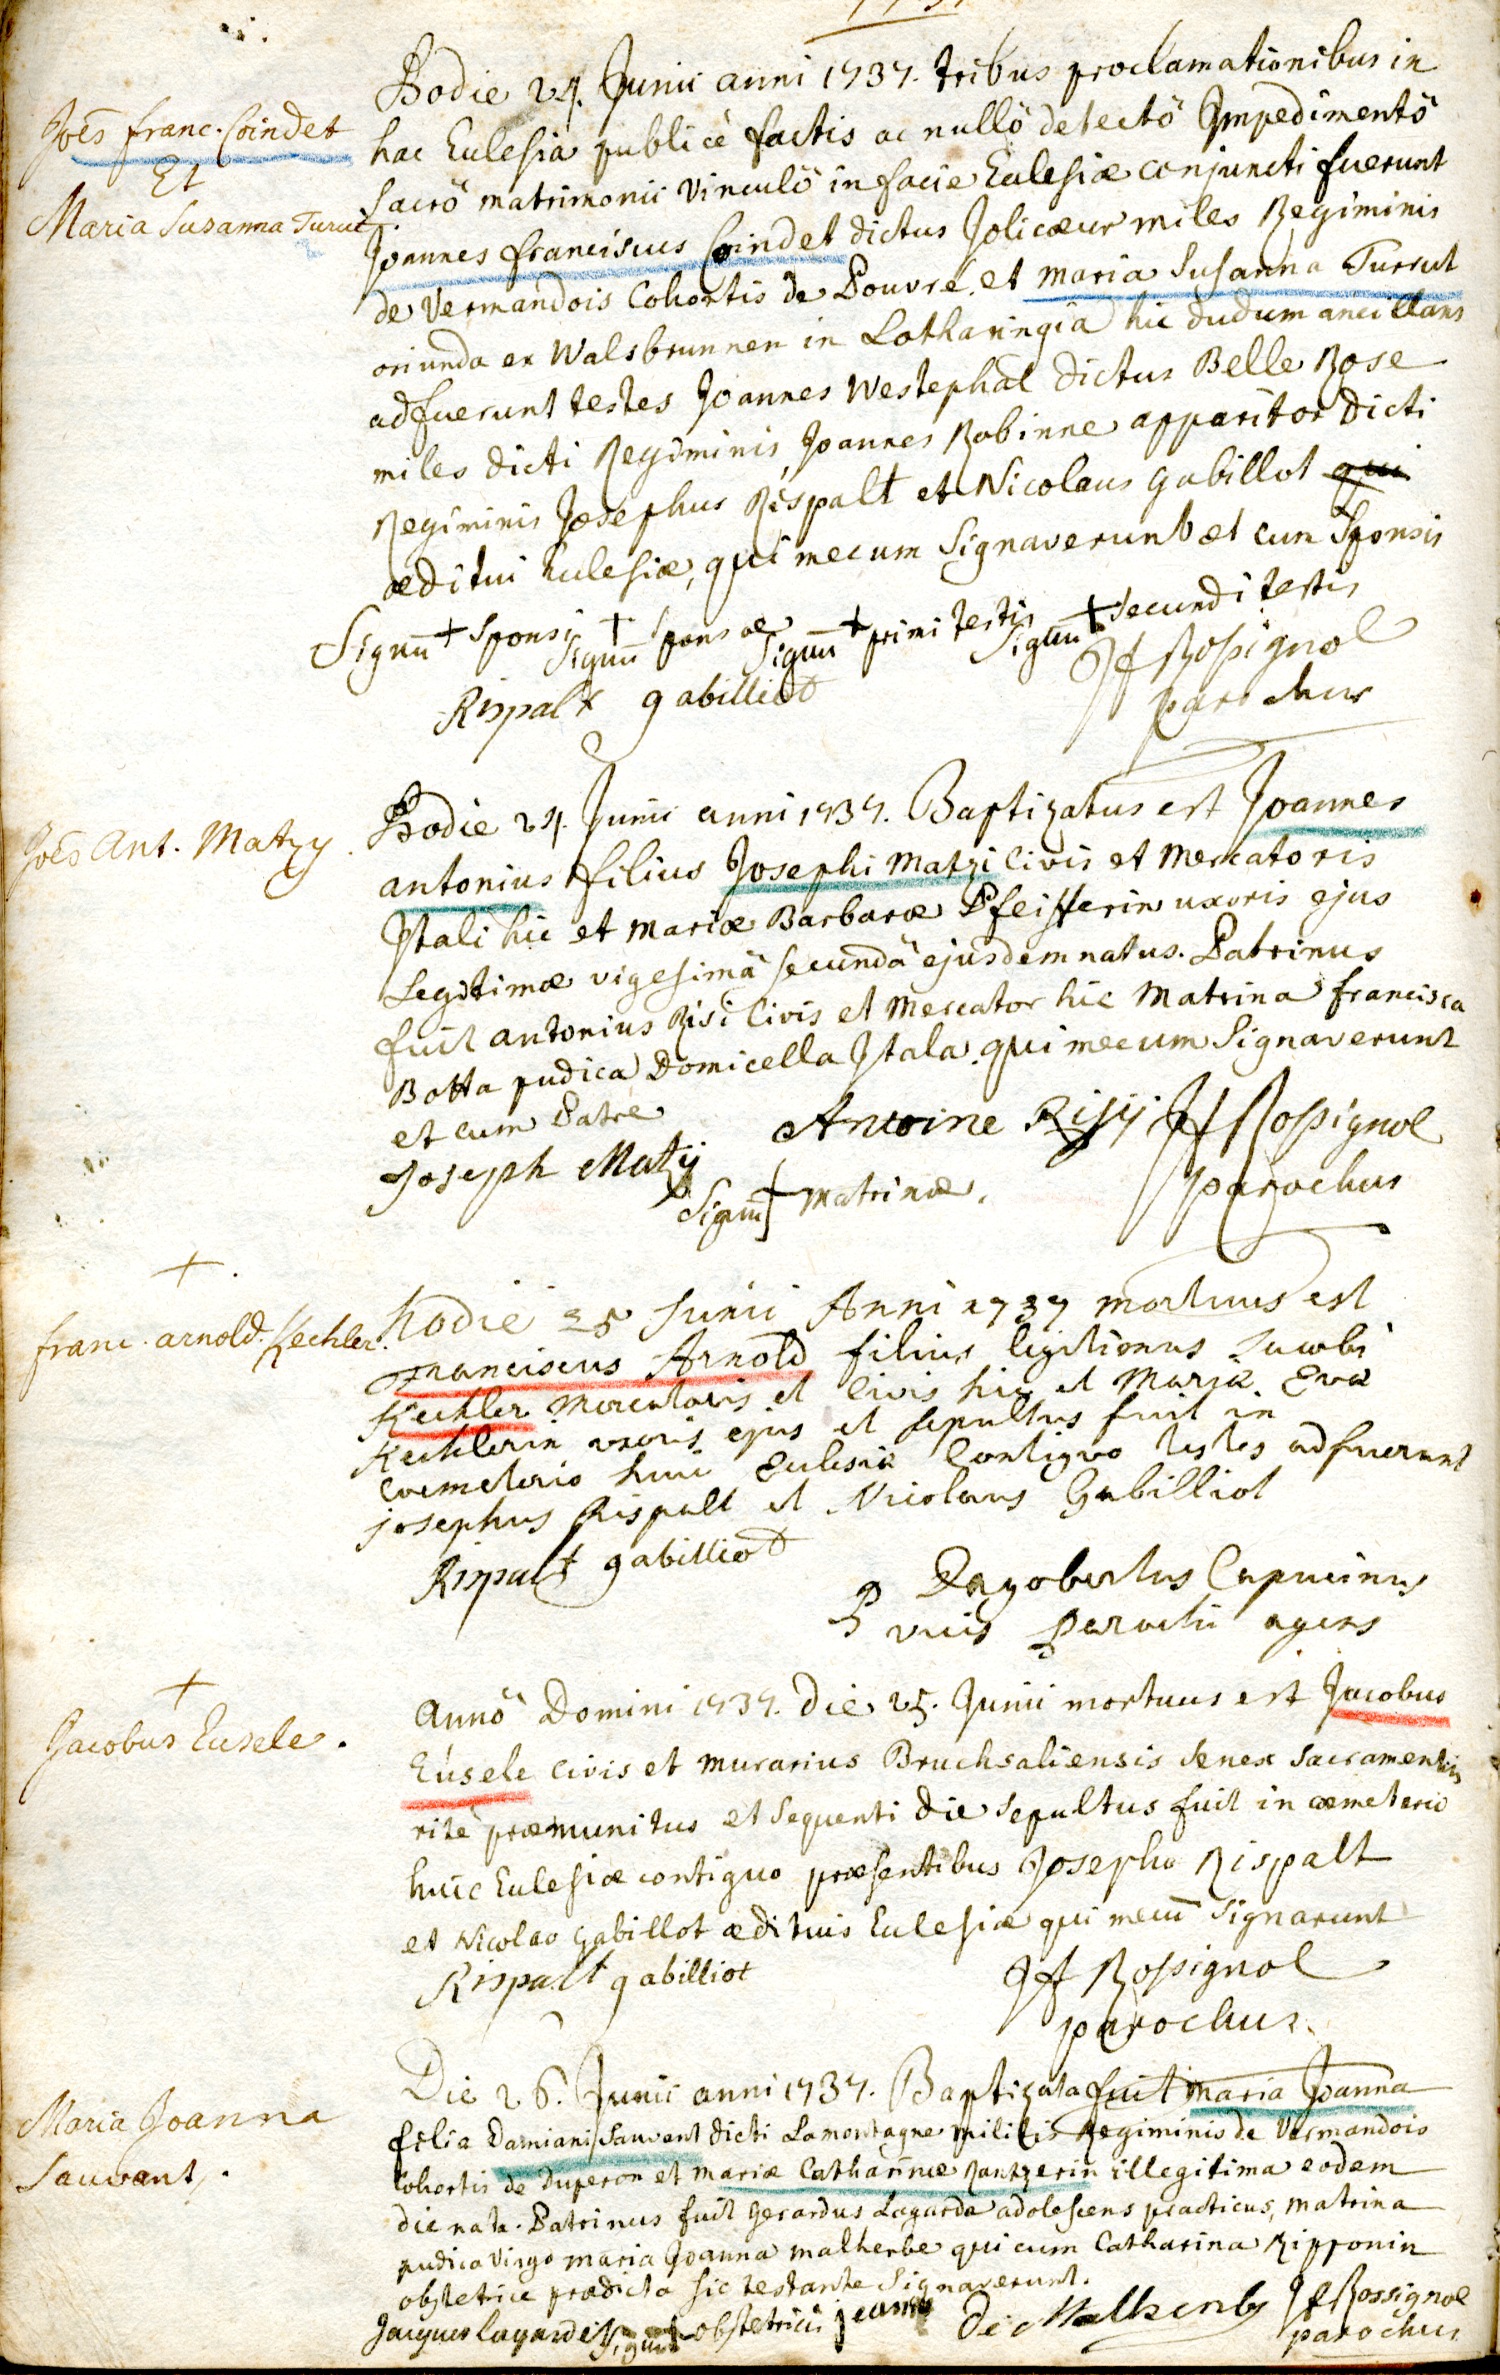 Joēs franc. Coindet
Et
Maria Susanna Turut
Hodie 24. Junii anni 1737. tribus proclamationibus in
hac Eclesia publice factis ac nullô detectô Impedimentô
sacrô matrimonii vinculô in facie Eclesiæ conjuncti fuerunt
Joannes franciscus Coindet dictus Jolicœur miles Regiminis
de Vermandois Cohortis de Pouvre, et Maria Susanna Turrut
oriunda ex Walsbrunnen in Lotharingia hic dudum ancillans
adfuerunt testes Joannes Westephal dictus Belle Rose
miles dicti Regiminis, Joannes Robinne apparitor dicti
Regiminis Josephus Rispalt et Nicolaus Gabillot qui
æditui Eclesiæ, qui mecum Signaverunt et cum Sponsis
Signū + Sponsi Signū + sponsæ Signū + primi testis Signū + secundi testis
Rispalt gabilliot
JF Rossignol
parochus
Joēs Ant. Matzy
Hodie 24. Junii anni 1737. Baptizatus est Joannes
antonius filius Josephi Matzi Civis et Mercatoris
Itali hic et Mariæ Barbaræ Pfeifferin uxoris ejus
Legitimæ vigesimâ secundâ ejusdem natus. Patrinus
fuit antonius Risi Civis et Mercator hic Matrina francisca
Botta pudica Domicella Itala. qui mecum Signaverunt
et cum Patre
Antoine Risÿ JF Rossignol
parochus
Joseph Matzÿ
Signū + Matrinæ.
+
franc. arnold. Kechler.
hodie 25 Junii Anni 1737 mortuus est
Franciscus Arnold filius legitimus Jacobi
Kechler Mercatoris et Civis hic et Mariæ Evæ
Kechlerin uxoris ejus et sepultus fuit in
Coemeterio huic Eclesiæ Contiguo testes adfuerunt
josephus Rispalt et Nicolaus Gabilliot
Rispalt gabilliot
P Dagobertus Capucinus
vices Parochi agens
+
Jacobus Eusele.
Annô Domini 1737. die 25. Junii mortuus est Jacobus
Eusele Civis et murarius Bruchsaliensis senex sacramentis
rite præmunitus et sequenti die sepultus fuit in cœmeterio
huic Eclesiæ contiguo præsentibus Josepho Rispalt
et Nicolao Gabillot ædituis Eclesiæ qui mecū Signarunt
Rispalt gabilliot
JF Rossignol
parochus.
Maria Joanna
Sauvant.
Die 26. Junii anni 1737. Baptizata fuit maria Joanna
filia Damiani Sauvent dicti Lamontagne militis Regiminis de Vermandois
Cohortis de Duperon et Mariæ Catharinæ Rantzerin illegitima eodem
die nata. Patrinus fuit Gerardus Lagarda adolescens practicus, matrina
pudica virgo maria Joanna malherbe qui cum Catharina Ripponin
obstetrice prædicta sic testante Signaverunt.
Jacques lagarde Signū + obstetricis jeanne De Malherbe JF Rossignol
parochus